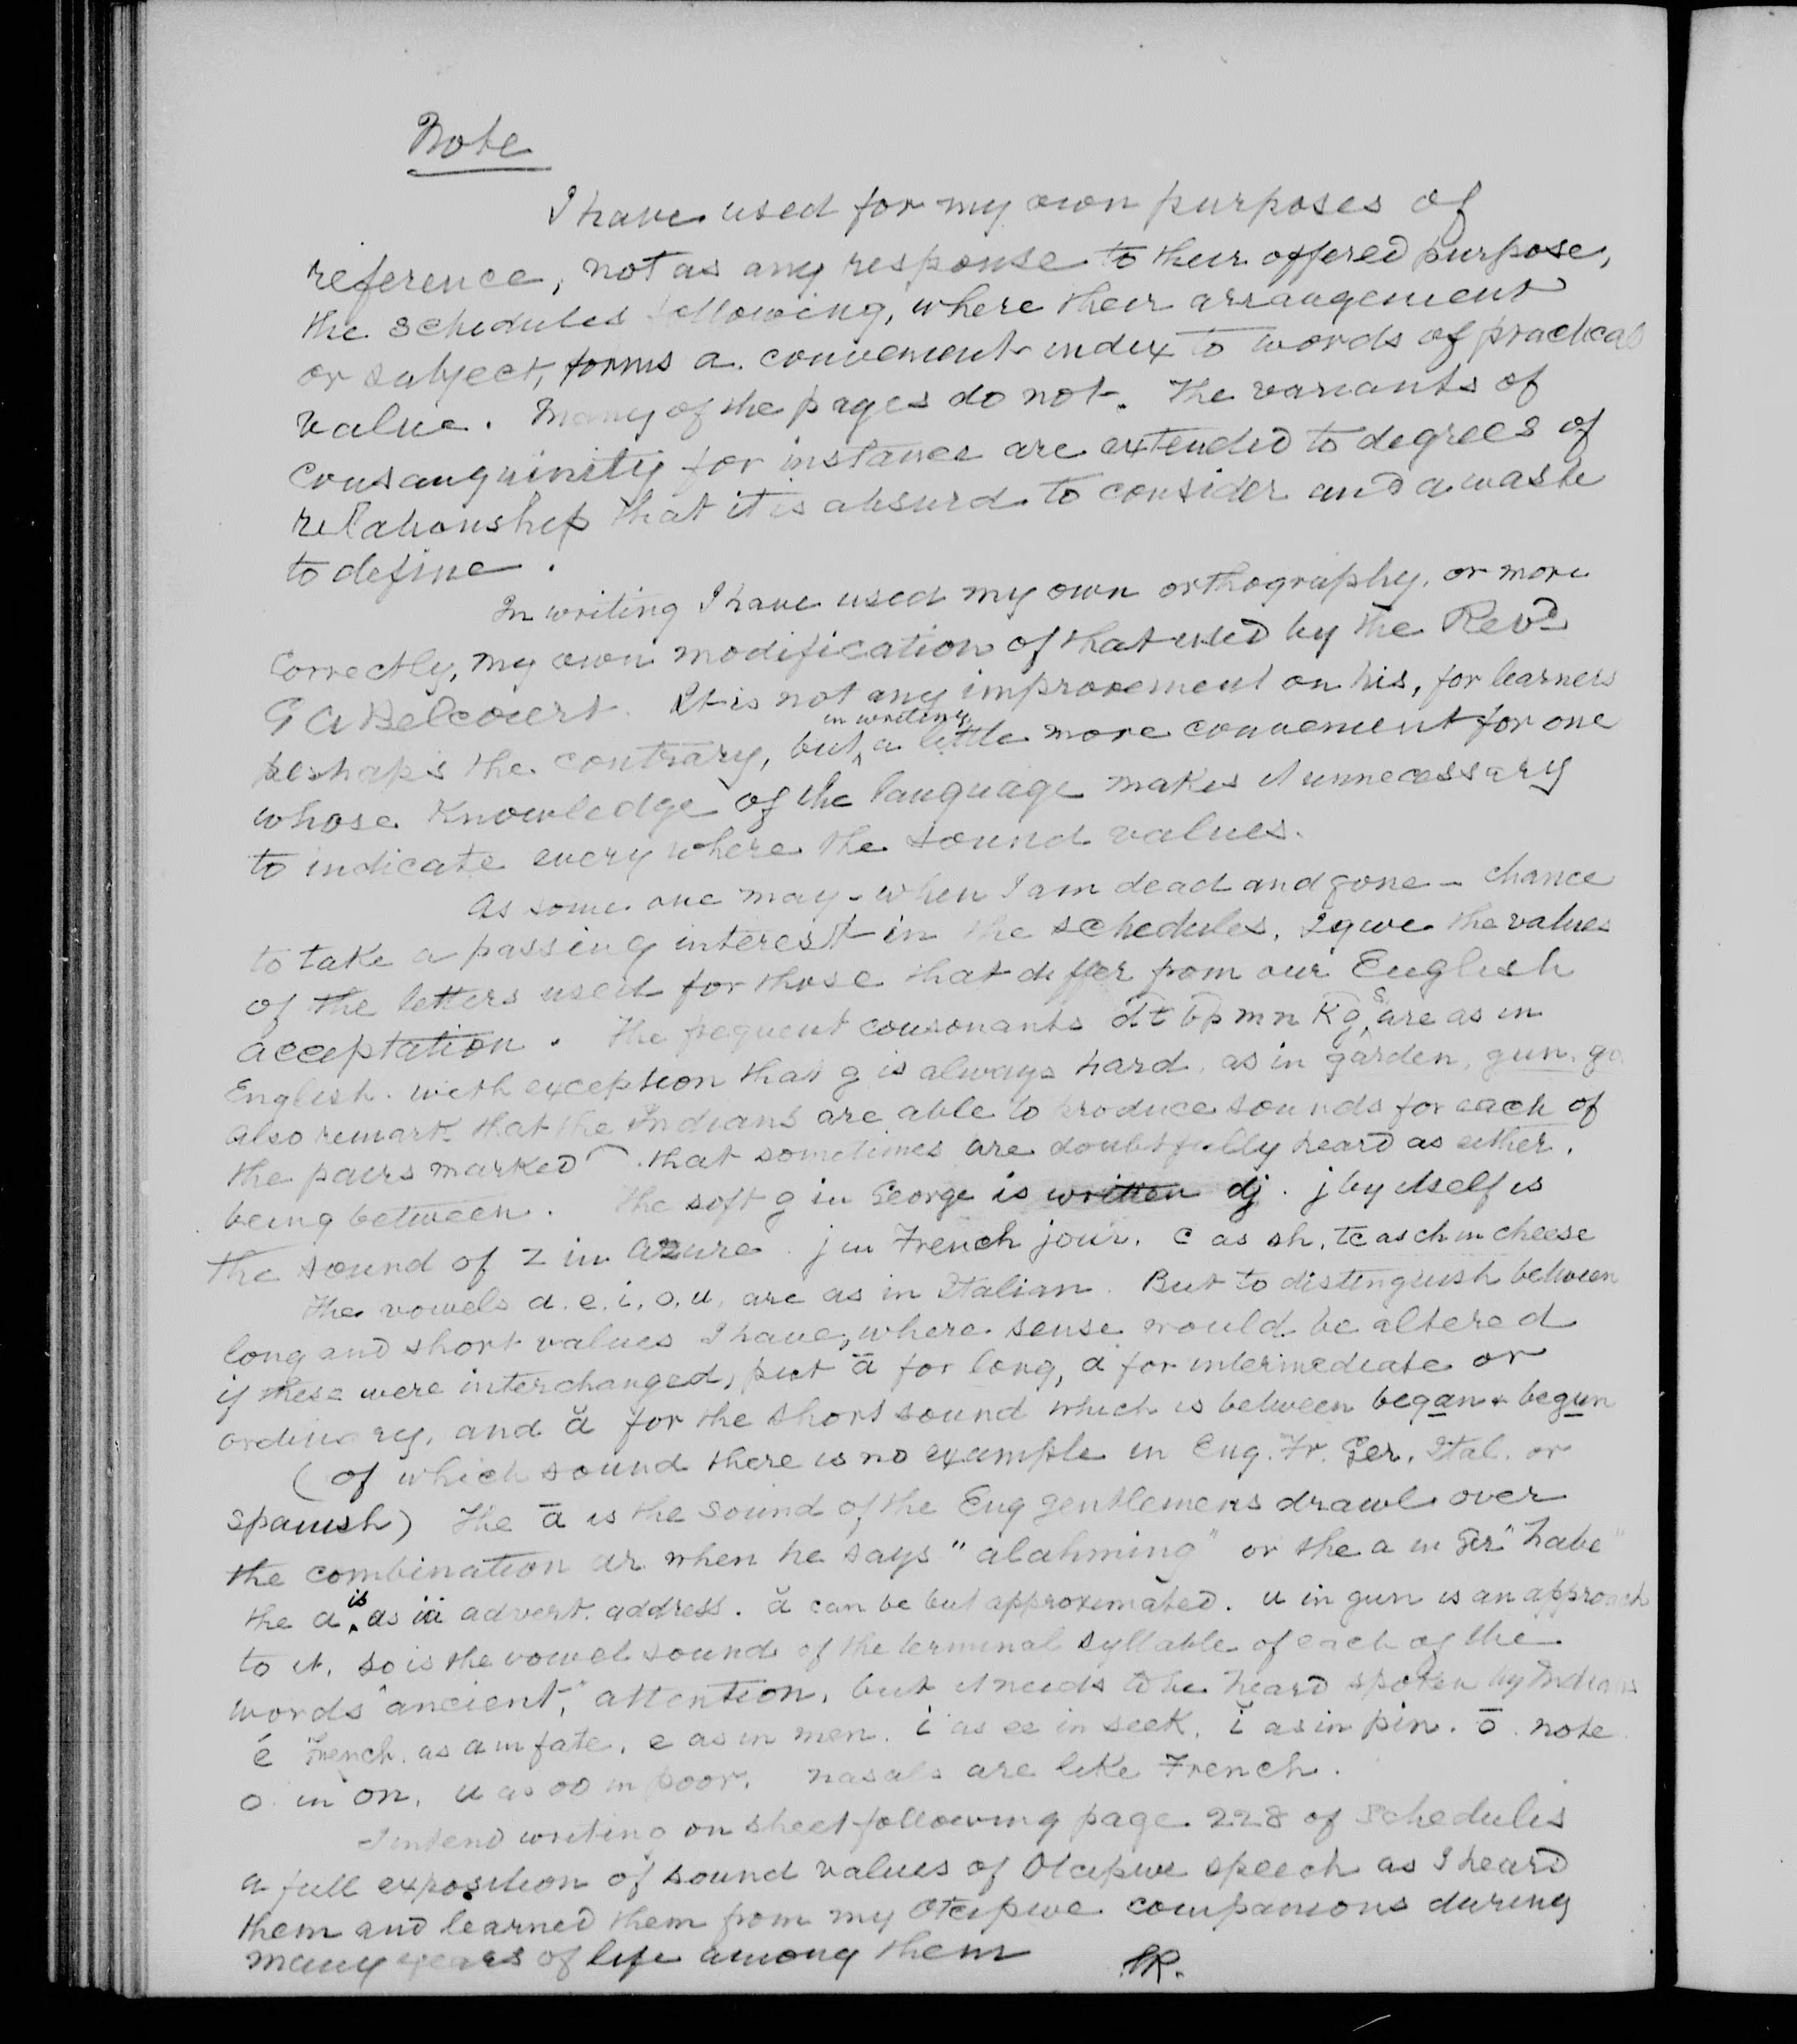 Note
I have used for my own purposes of
reference, not as any response to their offered purpose,
the schedules following, where their arrangement
or subject, forms a convenient index to words of practical
value. Many of the pages do not. The variants of
consanguinity for instance are extended to degrees of
relationship that it is absurd to consider and a waste
to define.
In writing I have used my own orthography, or more
correctly, my own modification of that used by the Revd
G A Belcourt. It is not any improvement on his, for learners
in writing
perhaps the contrary, but ‸ a little more convenient for one
whose knowledge of the language makes it unnecessary
to indicate everywhere the sound values.
As some one may - when I am dead and gone - chance
to take a passing interest in the schedules, I give the values
of the letters used for those that differ from our English
acceptation. The frequent consonants d͡t b͡p m n k͡g s are as in
English. with exception that g is always hard, as in garden, gun, go
also remark that the Indians are able to produce sounds for each of
the pairs marked ⁀ that sometimes are doubtfully heard as either,
being between. The soft g in George is written dj. j by itself is
the sound of z in azure. j in French jour. c as sh, tc as ch in cheese
The vowels a. e. i, o, u, are as in Italian. But to distinguish between
long and short values I have, where sense would be altered
if these were interchanged, put ā for long, a for intermediate or
ordinary, and ă for the short sound which is between began & begun
(of which sound there is no example in Eng. Fr. Ger. Ital. or
Spanish) The ā is the sound of the Eng gentlemens drawl over
the combination ar when he says "alahming" or the a in Ger "habe"
the a ‸is as in advert. address. ă can be but approximated. u in gun is an approach
to it, so is the vowel sound of the terminal syllable of each of the
words "ancient," attention, but it needs to be heard spoken by Indians
é French. as a in fate, e as in men. i as ee in seek, ĭ as in pin. ō note
o in on, u as oo in poor. nasals are like French.
I intend writing on sheet following page 228 of schedules
a full exposition of sound values of Otcipwe speech as I heard
them and learned them from my Otcipwe companions during
many years of life among them